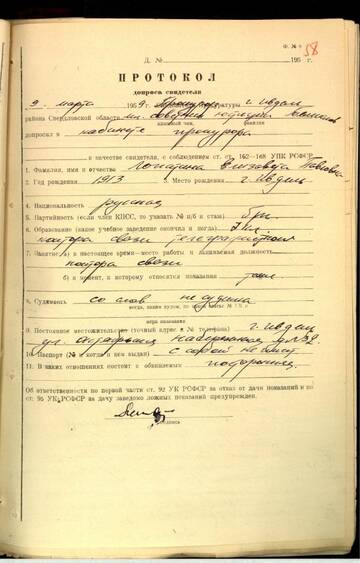 Ф. № 6
58
Д. № 195 г.
ПРОТОКОЛ
допроса свидетеля
9 марта 1959 г. Прокурор прокуратуры г. Ивдель
района Свердловской области мл. советник юстиции
классный чин, фамилия
допросил в кабинете прокурора
в качестве свидетеля, с соблюдением ст. ст. 162—168 УПК РСФСР
1. Фамилия, имя и отчество Лопатина Елизавета Павловна
2. Год рождения 1913 3. Место рождения г. Ивдель
4. Национальность русская
5. Партийность (если член КПСС, то указать № п/б и стаж) б/п
6. Образование (какое учебное заведение окончил и когда) 7 кл.
контора связи телеграфистка
7. Занятие: а) в настоящее время—место работы и занимаемая должность
контора связи
б) в момент, к которому относятся показания тоже
8. Судимость со слов не судима
когда, каким судом, по какой статье, мера наказания
9. Постоянное местожительство (точный адрес и № телефона) г. Ивдель
ул. Набережная д. № 32
10. Паспорт (№ и когда и кем выдан) с собой не имеет
11. В каких отношениях состоит с обвиняемым посторонняя
Об ответственности по первой части ст. 92 УК РСФСР за отказ от дачи показаний и по
ст. 95 УК РСФСР за дачу заведомо ложных показаний предупрежден.
подпись